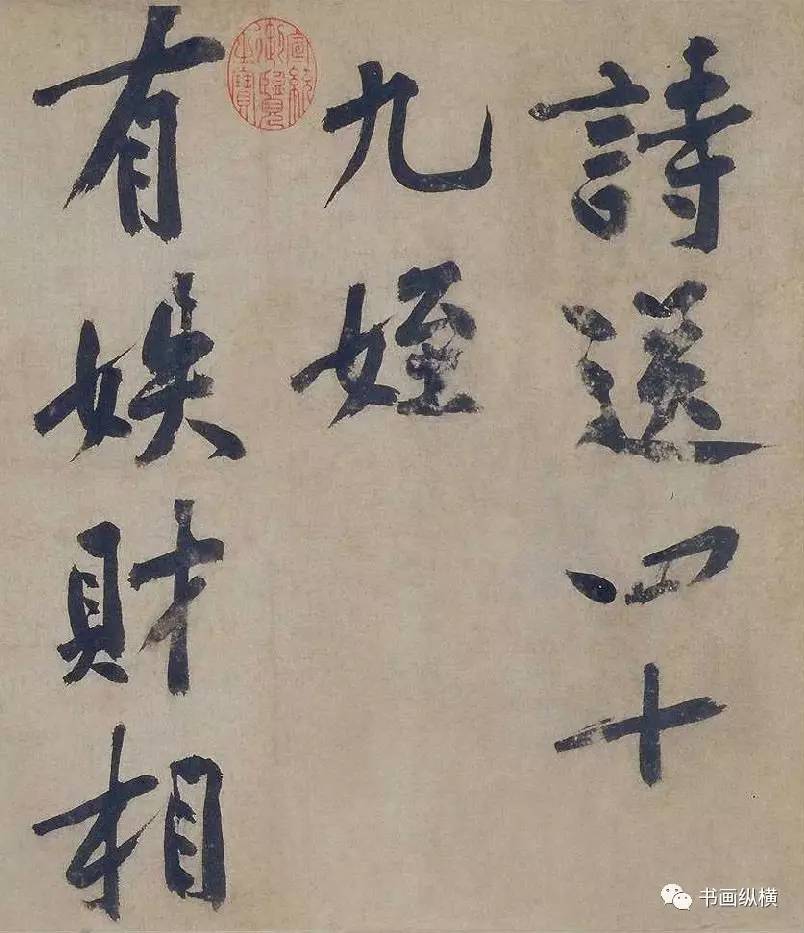 詩送四十
九姪
有財相
宣統御覽之寶
书画纵横